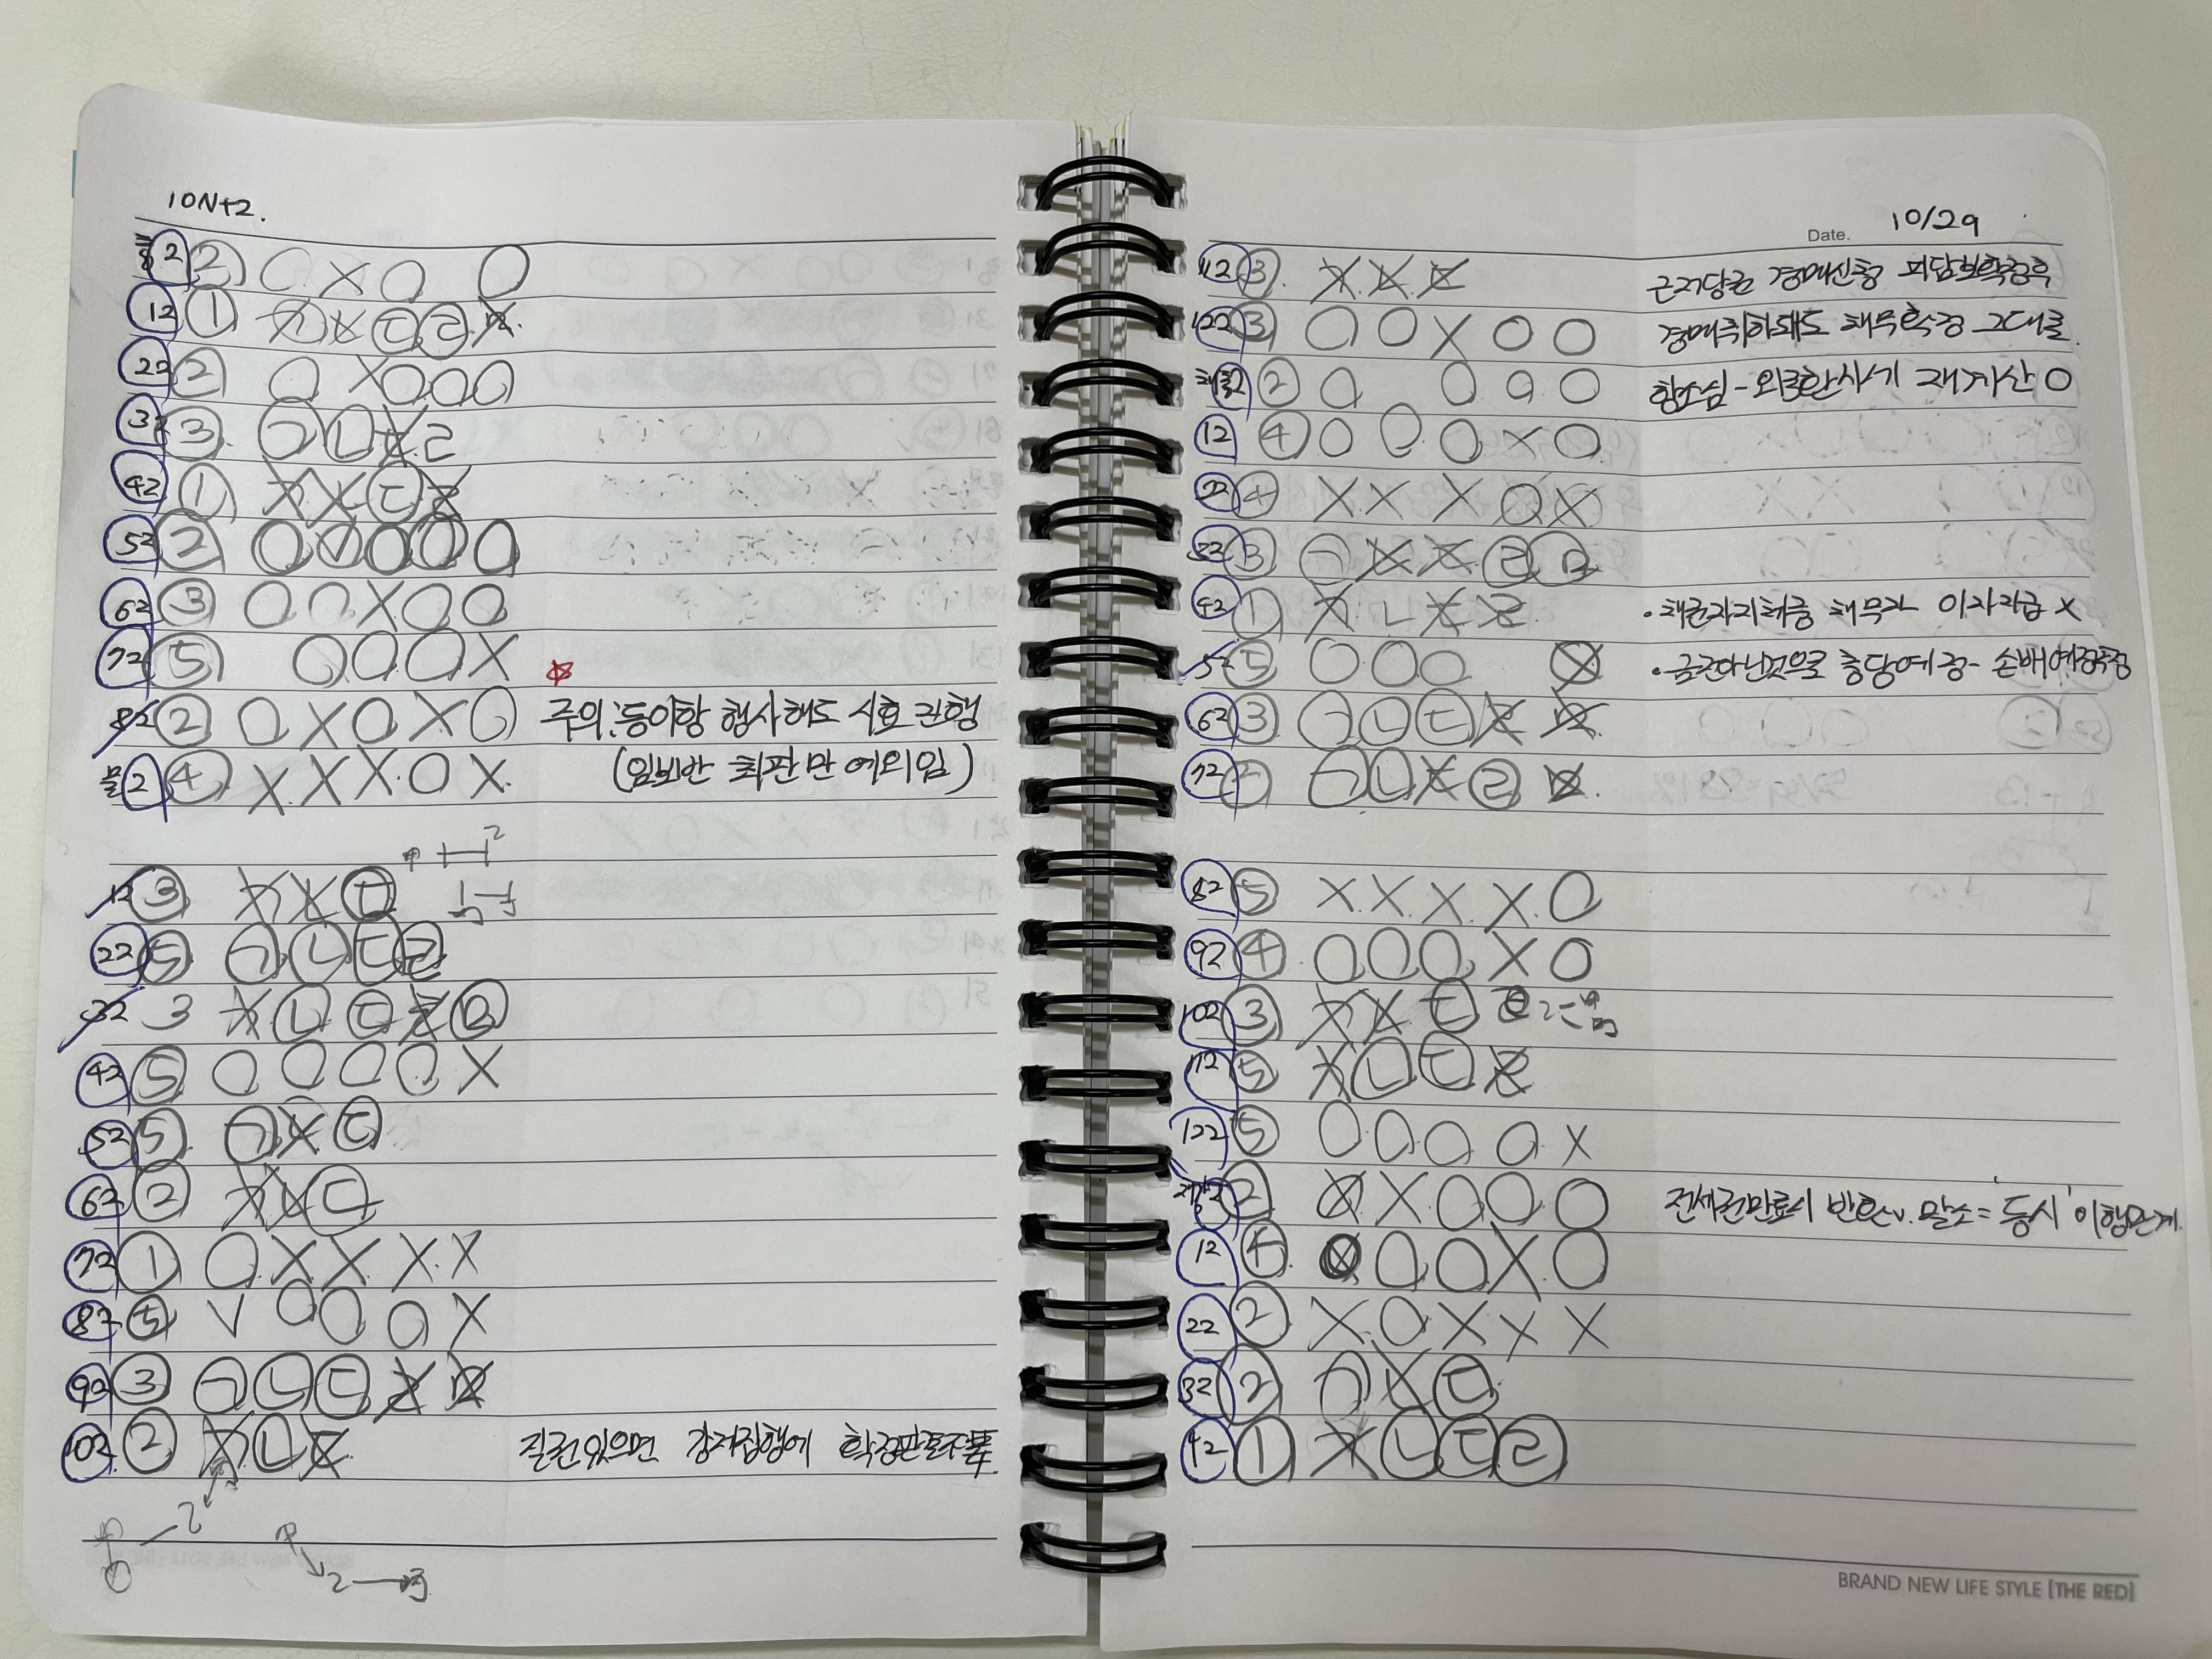 10N+2.
2 ② O X O O
12 ① ㄱ ㄴ ㄷ ㄹ ㅁ
22 ② O X O O O
32 ③ ㄱ ㄴ ㄷ ㄹ
42 ① ㄱ ㄴ ㄷ ㄹ
52 ② O V O O O
62 ③ O O X O O
72 ⑤ O O O X ☆
82 ② O X O X O 주의:동이항 행사해도 시효 진행
물2 ④ X X X O X (임보반 최판만 예외임)
12 ③ ㄱ ㄴ ㄷ
22 ⑤ ㄱ ㄴ ㄷ ㄹ
32 3 ㄱ ㄴ ㄷ ㄹ ㅁ
42 ⑤ O O O O X
52 ⑤ ㄱ ㄴ ㄷ
62 ② ㄱ ㄴ ㄷ
72 ① O X X X X
82 ⑤ V O O O X
92 ③ ㄱ ㄴ ㄷ ㄹ ㅁ
102 ② ㄱ ㄴ ㄷ 질권있으면 강제집행에
Date. 10/29
112 ③ ㄱ ㄴ ㄷ 근저당권 경매신청 피담보확정후
122 ③ O O X O O 경매취하돼도 채무확정 그대로.
채총2 ② O O O O 항소심-외료환사기 재계산 O
12 ④ O O O X O
22 ④ X X X O X
32 ③ ㄱ ㄴ ㄷ ㄹ ㅁ
42 ① ㄱ ㄴ ㄷ ㄹ ·채권자지체중 채무자 이자지급 X
52 ⑤ O O O X ·금전아닌것으로 충당예정- 손배예정추정
62 ③ ㄱ ㄴ ㄷ ㄹ ㅁ
72 ② ㄱ ㄴ ㄷ ㄹ ㅁ
82 ⑤ X X X X O
92 ④ O O O X O
102 ③ ㄱ ㄴ ㄷ
112 ⑤ ㄱ ㄴ ㄷ ㄹ
122 ⑤ O O O O X
2 ② X X O O O 전세권만료시 반환v.말소='동시'이행관계.
12 ④ X O O X O
22 ② X O X X X
32 ② ㄱ ㄴ ㄷ
42 ① ㄱ ㄴ ㄷ ㄹ
BRAND NEW LIFE STYLE [THE RED]